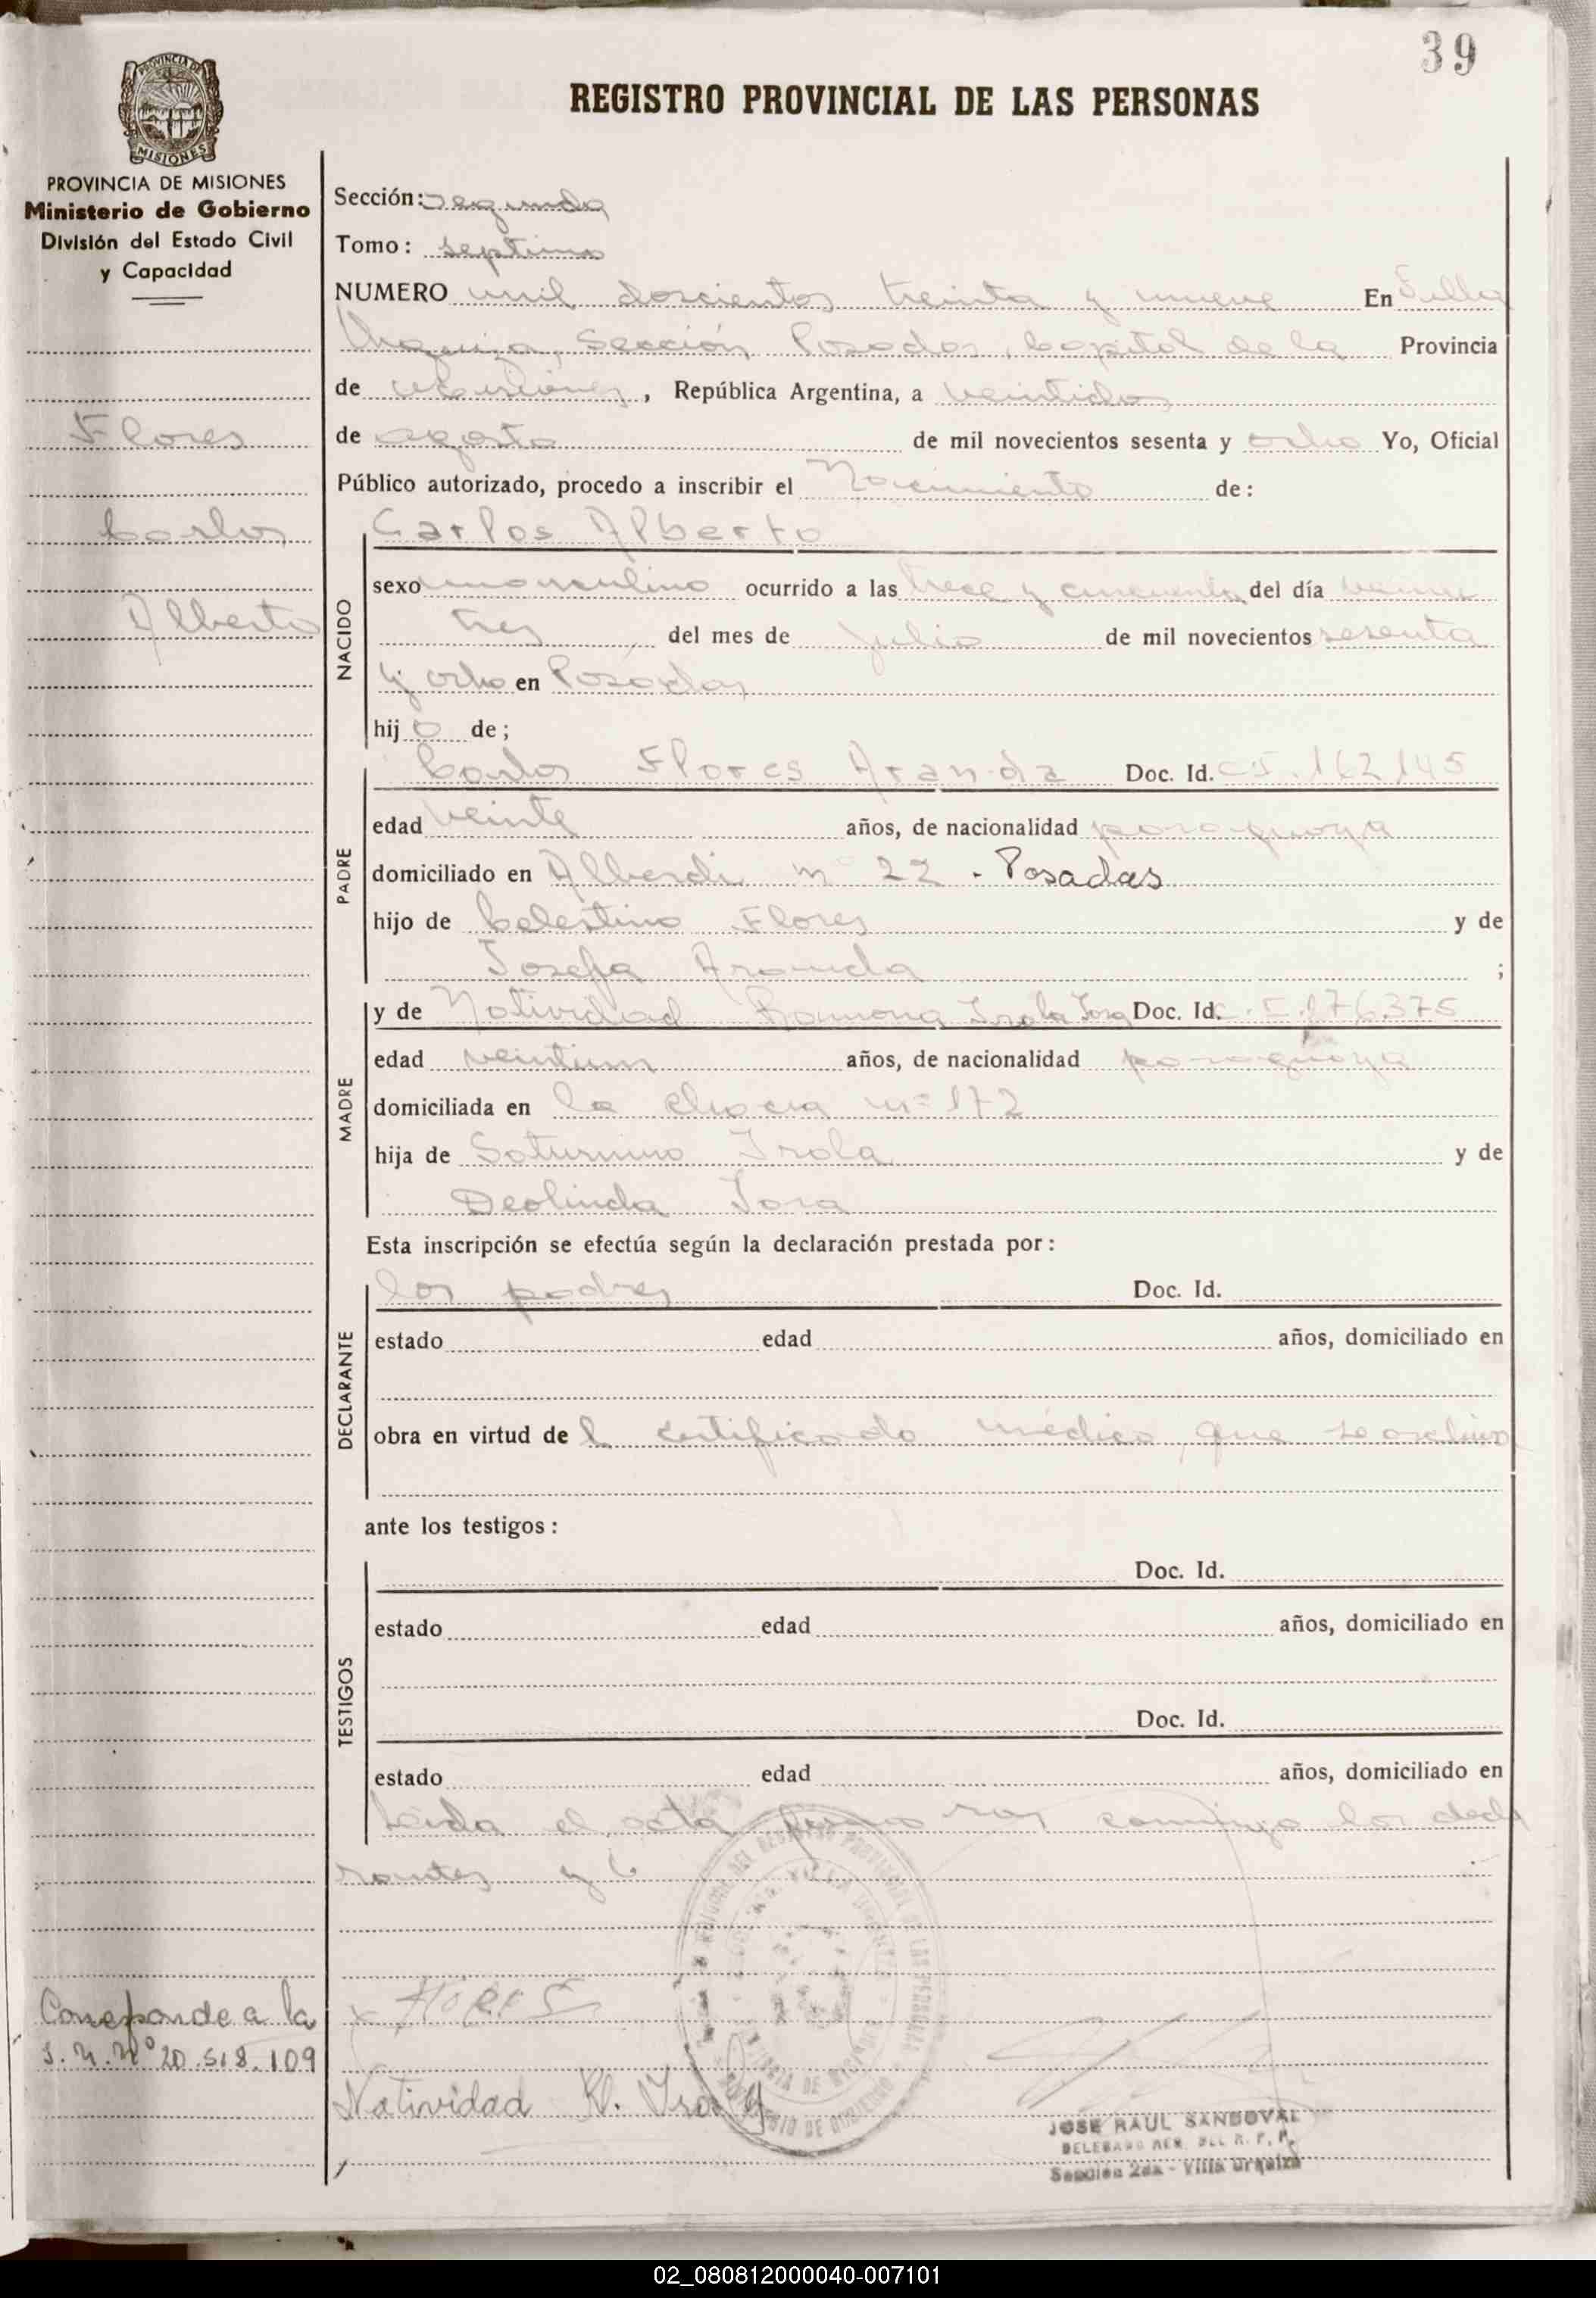 39
REGISTRO PROVINCIAL DE LAS PERSONAS
PROVINCIA DE MISIONES
MISIONES
PROVINCIA DE MISIONES
Ministerio de Gobierno
División del Estado Civil
y Capacidad
Flores
Carlos
Alberto
Sección: segunda
Tomo: septimo
NUMERO mil doscientos treinta y nueve En Villa
Urquiza, Sección Posadas, Capital de la Provincia
de Misiones, República Argentina, a veintidos
de agosto de mil novecientos sesenta y ocho Yo, Oficial
Público autorizado, procedo a inscribir el Nacimiento de:
Carlos Alberto
NACIDO
sexo masculino ocurrido a las trece y cincuenta del día
tres del mes de julio de mil novecientos sesenta
y ocho en Posadas
hijo de;
PADRE
Carlos Flores Aranda Doc. Id. C.I. 162.145
edad veinte años, de nacionalidad paraguaya
domiciliado en Alberdi nº 22 - Posadas
hijo de Celestino Flores y de
Josefa Aranda ;
MADRE
y de Natividad Ramona Irala Doc. Id. C.I. 176.375
edad veintiun años, de nacionalidad paraguaya
domiciliada en la chacra nº 172
hija de Saturnino Irala y de
Deolinda
Esta inscripción se efectúa según la declaración prestada por:
DECLARANTE
los padres Doc. Id.
estado edad años, domiciliado en
obra en virtud del certificado médico, que se archiva
ante los testigos:
TESTIGOS
Doc. Id.
estado edad años, domiciliado en
Doc. Id.
estado edad años, domiciliado en
Leida el acta conmigo los decla
rantes y
Corresponde a la
Nº 20.518.109
x FLORES
Natividad R. Irala
JOSE RAUL SANDOVAL
DELEGADO DEL R. P. P.
Sección 2da - Villa Urquiza
02_080812000040-007101